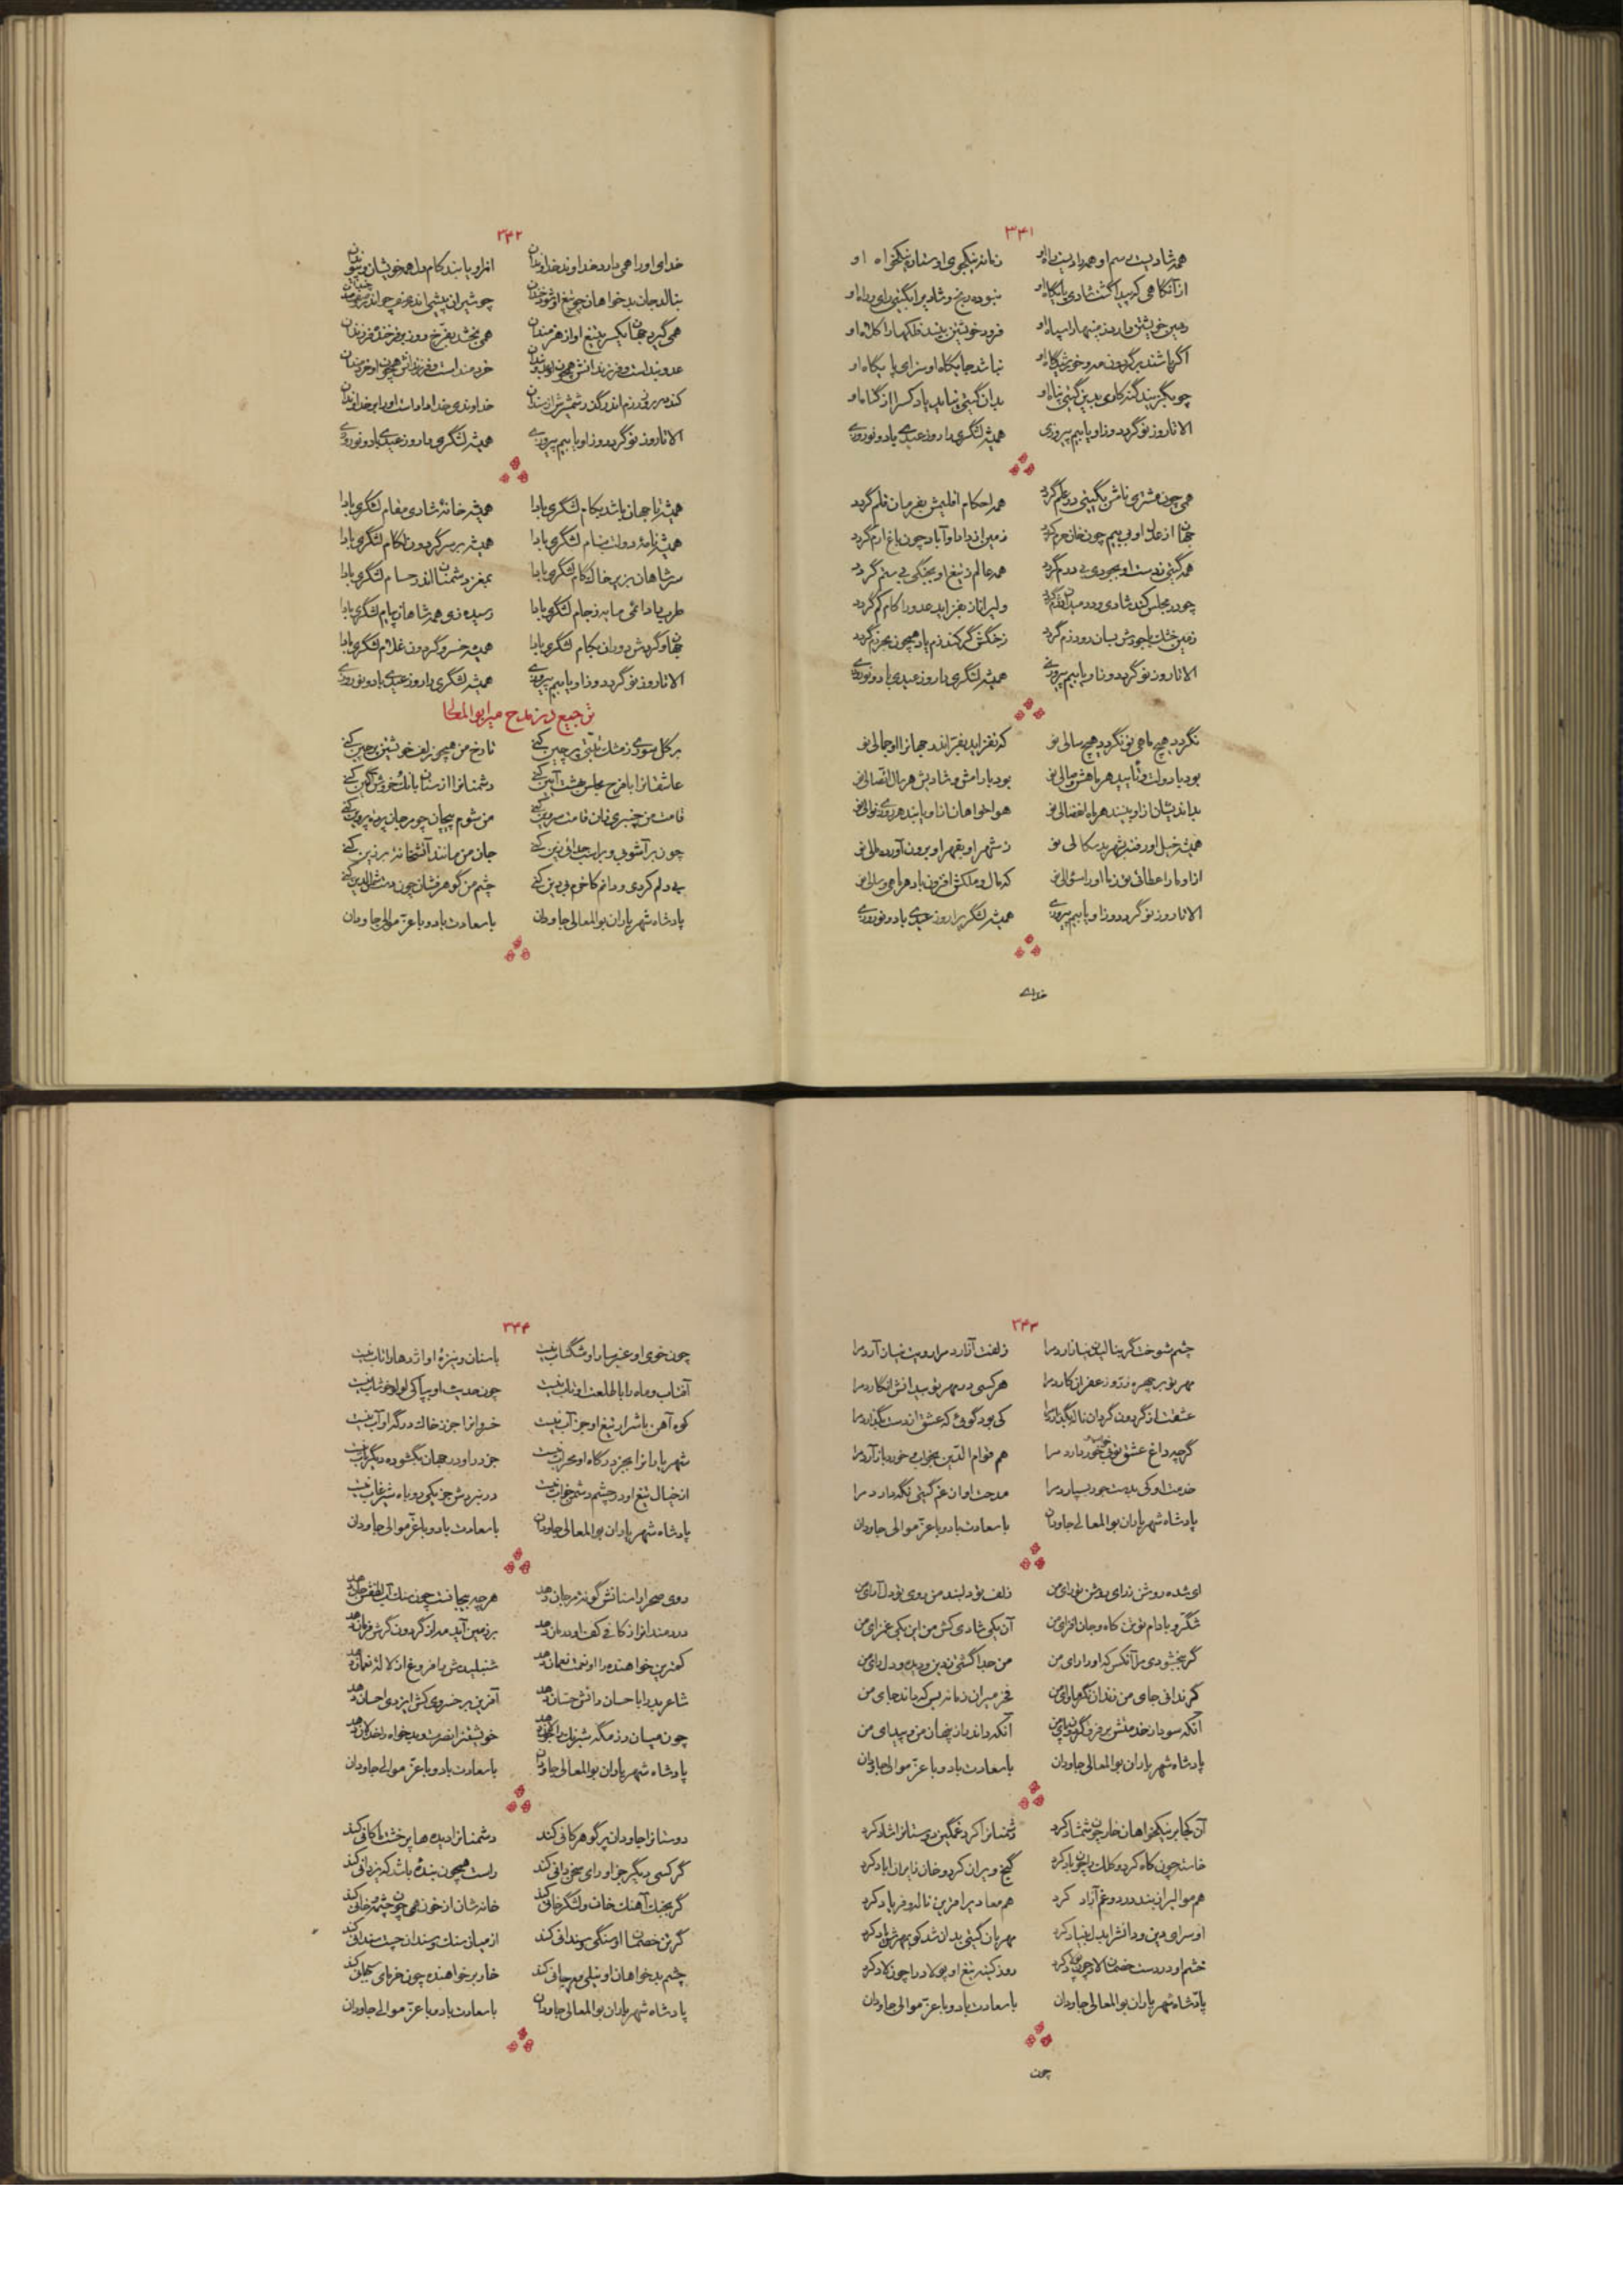 ۳۴۱
همه شادیست رسم او همه رادیست راه او زمانه نیکجوی او ستاره نیکخواه او
از آنگاهی که پیدا گشت شادی پایگاه او
زمین خویشتن دارد ز پنهان سپاه او فرود خویشتن بیند فلکها را کلاه او
اگر باشند بر گردون مه و خورشید گاه او نباشد جایگاه او سزای پایگاه او
چو بگزیند گنه کاری بدین گیتی پناه او بدان گیتی نیابد یاد کس را از گناه او
الا تا روز نو گردد وزاو یابیم پیروزی همیشه لشگری را روز عیدی باد و نوروزی
همی چون مشتری تابش بگیتی در علم گردد همه احکام اقلیمش بفرمان قلم گردد
جهان از عدل او بی بیم چون خان حرم گردد زمین از داد او آباد چون باغ ارم گردد
همه گیتی ز دست او بجودی بی درم گردد همه عالم ز تیغ او بجنگی بی ستم گردد
چو در مجلس کند شادی
زمین خشک با جودش بسان رود زم گردد ز خنگش گر کند زم یاد همچون بحر زم گردد
الا تا روز نو گردد وزاو یابیم پیروزی همیشه لشگری را روز عیدی باد و نوروزی
نگردد هیچ ماهی نو نگردد هیچ سالی نو که نفزاید بفر اندر جهان او را جمالی نو
بود با دولت و تأیید هر ماهش وصالی نو بود با رامش و شادیش هر سال اتصالی نو
بداندیشان از او بینند هر ماه انفصالی نو هواخواهان از او یابند هر روزی نوالی نو
همیشه خیل او رفتن بشهر بدسگالی نو ز شهر او بقهر او برون آورده مالی نو
از او ما را عطائی نو ز ما او را سؤالی نو که مال و ملکش افزون باد هر ماهی و سالی نو
الا تا روز نو گردد وزاو یابیم پیروزی همیشه لشگری را روز عیدی باد و نوروزی
خدای
۳۴۲
خدای او را همی دارد خداوند خداوندان از او یابند کام دل همه خویشان و پیوندان
بنالد جان بدخواهان چو تیغ او شود خندان
همی گیرد جهان یکسر بتیغ او از هنرمندان همی بخشد بفرخ روز بر فرخنده فرزندان
خردمند است و فرزندانش همچون او خردمندان
الا تا روز نو گردد وزاو یابیم پیروزی همیشه لشگری را روز عیدی باد و نوروزی
همیشه تا جهان باشد بکام لشگری بادا همیشه خانهٔ شادی مقام لشگری بادا
همیشه نامهٔ دولت بنام لشگری بادا همیشه بر سر گردون لگام لشگری بادا
سر شاهان بزیر خاک گام لشگری بادا بمغز دشمنان اندر حسام لشگری بادا
طرب را دائمی مایه ز جام لشگری بادا رسیده زی همه شاهان پیام لشگری بادا
جهان و گردش دوران بکام لشگری بادا همیشه خسرو گردون غلام لشگری بادا
الا تا روز نو گردد وزاو یابیم پیروزی همیشه لشگری را روز عیدی باد و نوروزی
ترجیع در مدح میر ابوالمعالی
بر گل سوری ز مشک تبتی پرچین کنی تا رخ من همچو زلف خویشتن پرچین کنی
عاشقانرا با فرح مجلس بهشت آیین کنی
قامت من چنبری زان قامت سروین کنی من شوم پیچان چو مرجان
چون بر آشوبی و بر اسب جدائی زین کنی جان من مانند آتشخانهٔ برزین کنی
بی دلم کردی و دانم کاخرم بی دین کنی چشم من گوهر فشان چون دست شمس الدین کنی
پادشاه شهریاران بوالمعالی جاودان با سعادت باد و با عز موالی جاودان
۳۴۳
چشم شوخت گر بنالیدن نیازارد مرا زلفت آزارد مرا رویت نیاز آرد مرا
مهر تو بر چهره زر و زعفران کارد مرا هر کسی در مهر تو بیدانش انگارد مرا
عشقت از گردون گردان ناله بگذارد مرا کی بود گوئی که عشق از دست بگذارد مرا
گرچه داغ عشق تو بی خواب و خور دارد مرا هم قوام الدین بخواب و خورد باز آرد مرا
خدمت او کی بدست جور بسپارد مرا مدحت او از غم گیتی نگه دارد مرا
پادشاه شهریاران بوالمعالی جاودان با سعادت باد و با عز موالی جاودان
ای شده روشن ز رای روشن تو رای من زلف تو دلبند من روی تو دل آرای من
شکر و بادام تو تن کاه و جان افزای من آن یکی شادی کش من این یکی غم زای من
من جدا گشتی ز دین و دیده و دل وای من
فخر میران زمانه بس که باید جای من
آنکه داند راز پنهان من و پیدای من
پادشاه شهریاران بوالمعالی جاودان با سعادت باد و با عز موالی جاودان
آن کجا بر نیکخواهان خار چون شمشاد کرد دشمنانرا کرد غمگین دوستانرا شاد کرد
خاسته چون کاه کرد و کلک را چون باد کرد گنج ویران کرد و خان زایران آباد کرد
هم موالی را ز بند درد و غم آزاد کرد هم معادی را قرین ناله و فریاد کرد
او سرای دین و دانش را بدل بنیاد کرد مهربان گیتی بدان شد کو بمهرش یاد کرد
روز کینه تیغ او پولاد را چون لاد کرد
پادشاه شهریاران بوالمعالی جاودان با سعادت باد و با عز موالی جاودان
چون
۳۴۴
چون خوی او عنبر سارا و مشک ناب نیست با سنان و نیزهٔ او اژدها را تاب نیست
آفتاب و ماه را با طلعت او تاب نیست چون حدیث او بپاکی لولو خوشاب نیست
کوه آهن با شرار تیغ او جز آب نیست خسروانرا جز ز خاک درگه او آب نیست
شهریارانرا بجز درگاه او محراب نیست جز در او در جهان بگشوده دیگر باب نیست
از خیال تیغ او در چشم دشمن خواب نیست در نبردش جز یکی روباه شیر غاب نیست
پادشاه شهریاران بوالمعالی جاودان با سعادت باد و با عز موالی جاودان
روی صحرا را سنانش گونهٔ مرجان دهد
دردمندانرا ز کافی کف او درمان دهد بر زمین آید مه از گردون گرش فرمان دهد
کمترین خواهنده را او نعمت نعمان دهد شنبلیدش را فروغ از لالهٔ نعمان دهد
شاعر بد را باحسان دانش حسّان دهد آفرین بر خسروی کش ایزدی احسان دهد
چون میان رزمگه شبرنگ را جولان دهد خویشتن را نصرت و بدخواه را خذلان دهد
پادشاه شهریاران بوالمعالی جاودان با سعادت باد و با عز موالی جاودان
دوستانرا جاودان پر گوهر کانی کند دشمنانرا دیده ها پر خشت پیکانی کند
گر کسی دیگر جز او رای سخن دانی کند راست همچون بنده باشد که یزدانی کند
گر بجنگ آهنگ خان و لشگر خانی کند
گر تن خصمان او سنگی و سندانی کند
چشم بدخواهان او نیلی و مرجانی کند خار بر خواهنده چون خرمای
پادشاه شهریاران بوالمعالی جاودان با سعادت باد و با عز موالی جاودان